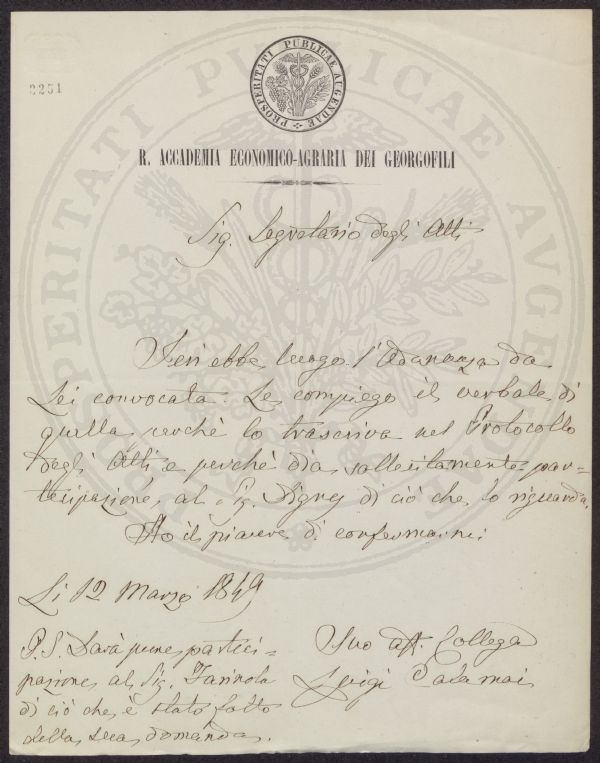 2251
PROSPERITATI PUBLICAE AUGENDAE
R. ACCADEMIA ECONOMICO-AGRARIA DEI GEORGOFILI
Sig. Segretario degli Atti
Ieri ebbe luogo l'Adunanza da
Lei convocata: Le compiego il verbale di
quella, perchè lo trascriva nel Protocollo
degli Atti e perchè dia sollecitamente par-
tecipazione al Sig. di ciò che lo riguarda.
Ho il piacere di confermarmi
Li 12 Marzo 1849
Suo aff. Collega
Luigi Calamai
P.S. Darà pure parteci-
pazione al Sig. Farinola
di ciò che è stato fatto
della sua domanda.